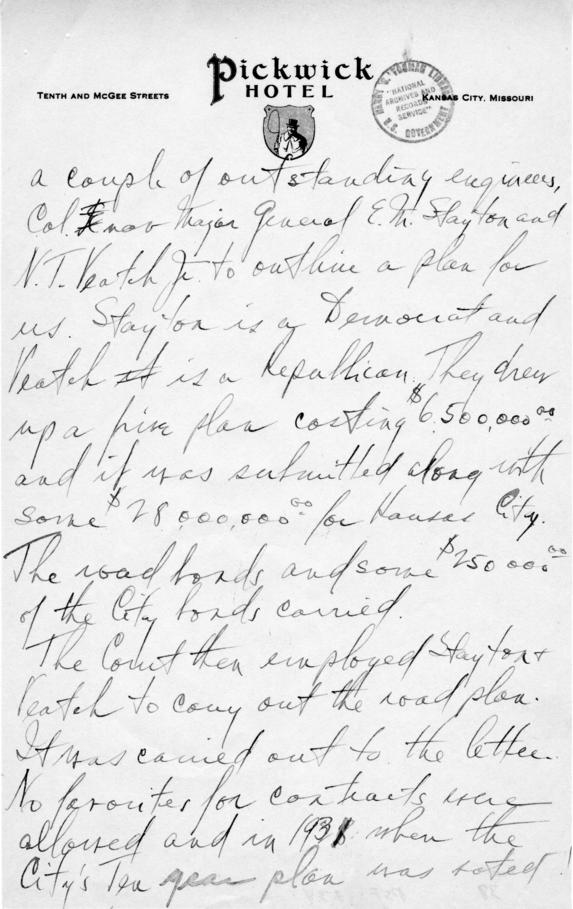 Pickwick
HOTEL
TENTH AND McGEE STREETS
KANSAS CITY, MISSOURI
HARRY S. TRUMAN LIBRARY
"NATIONAL
ARCHIVES AND
RECORDS
SERVICE"
U.S. GOVERNMENT
a couple of outstanding engineers,
Col. now Major General E.M. Stayton and
N.T. Veatch Jr. to outline a plan for
us. Stayton is a Democrat and
Veatch is a Republican. They drew
up a fine plan costing $6,500,000.00
and it was submitted along with
some $28,000,000.00 for Kansas City.
The road bonds and some $250,000.00
of the City bonds carried.
The Court then employed Stayton +
Veatch to carry out the road plan.
It was carried out to the letter.
No favorites for contracts were
allowed and in 1931 when the
City's Ten year plan was voted